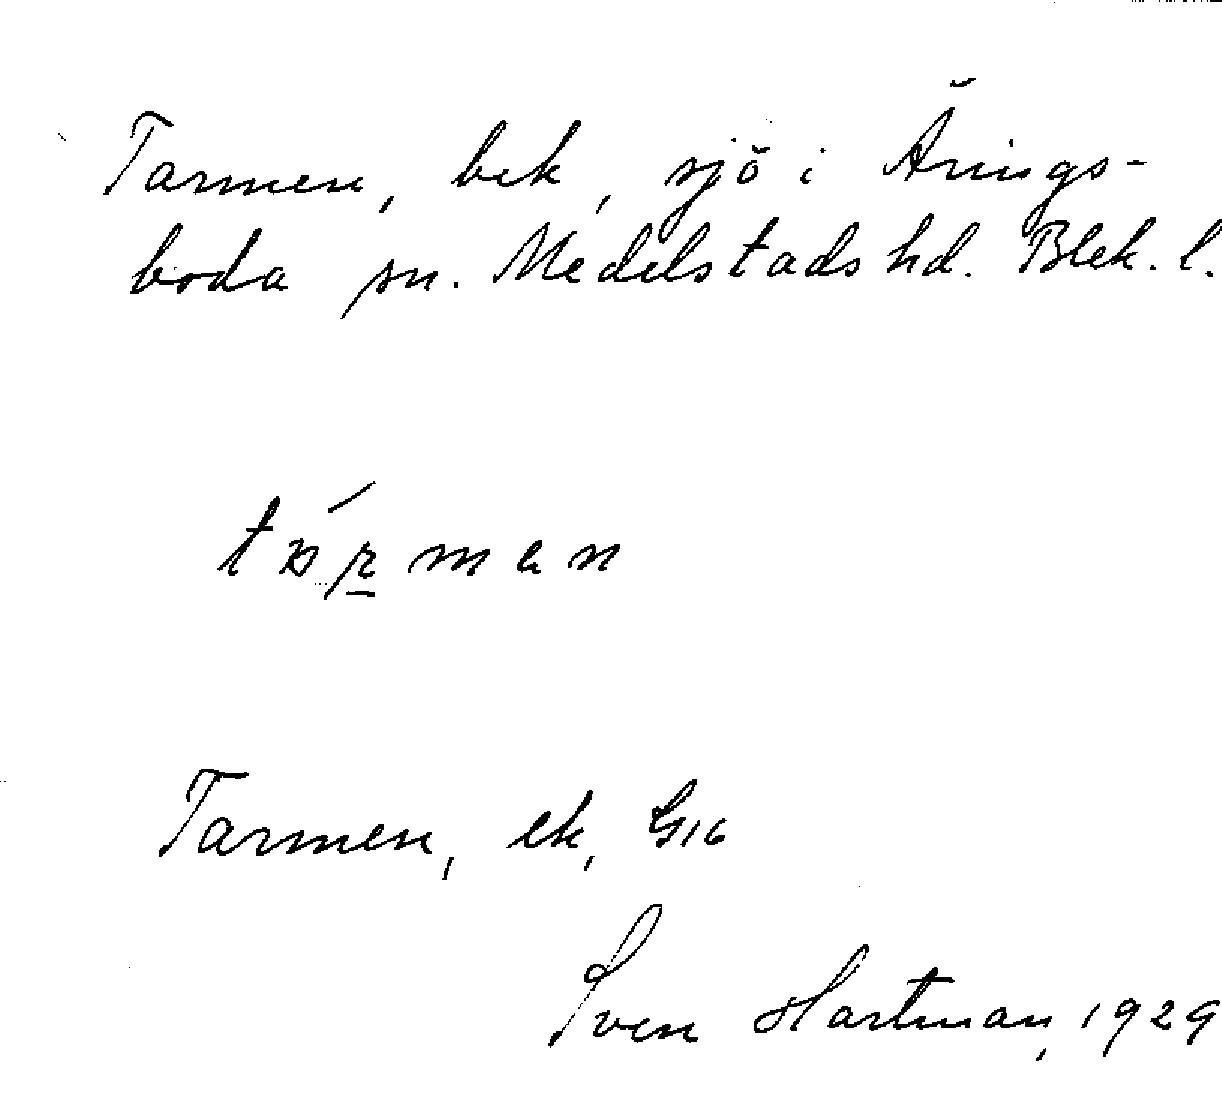 Tarmen, bek, sjö i Ärings-
boda sn. Medelstads hd. Blek. l.
Tarmen, ek, G16
Sven Hartman, 1929